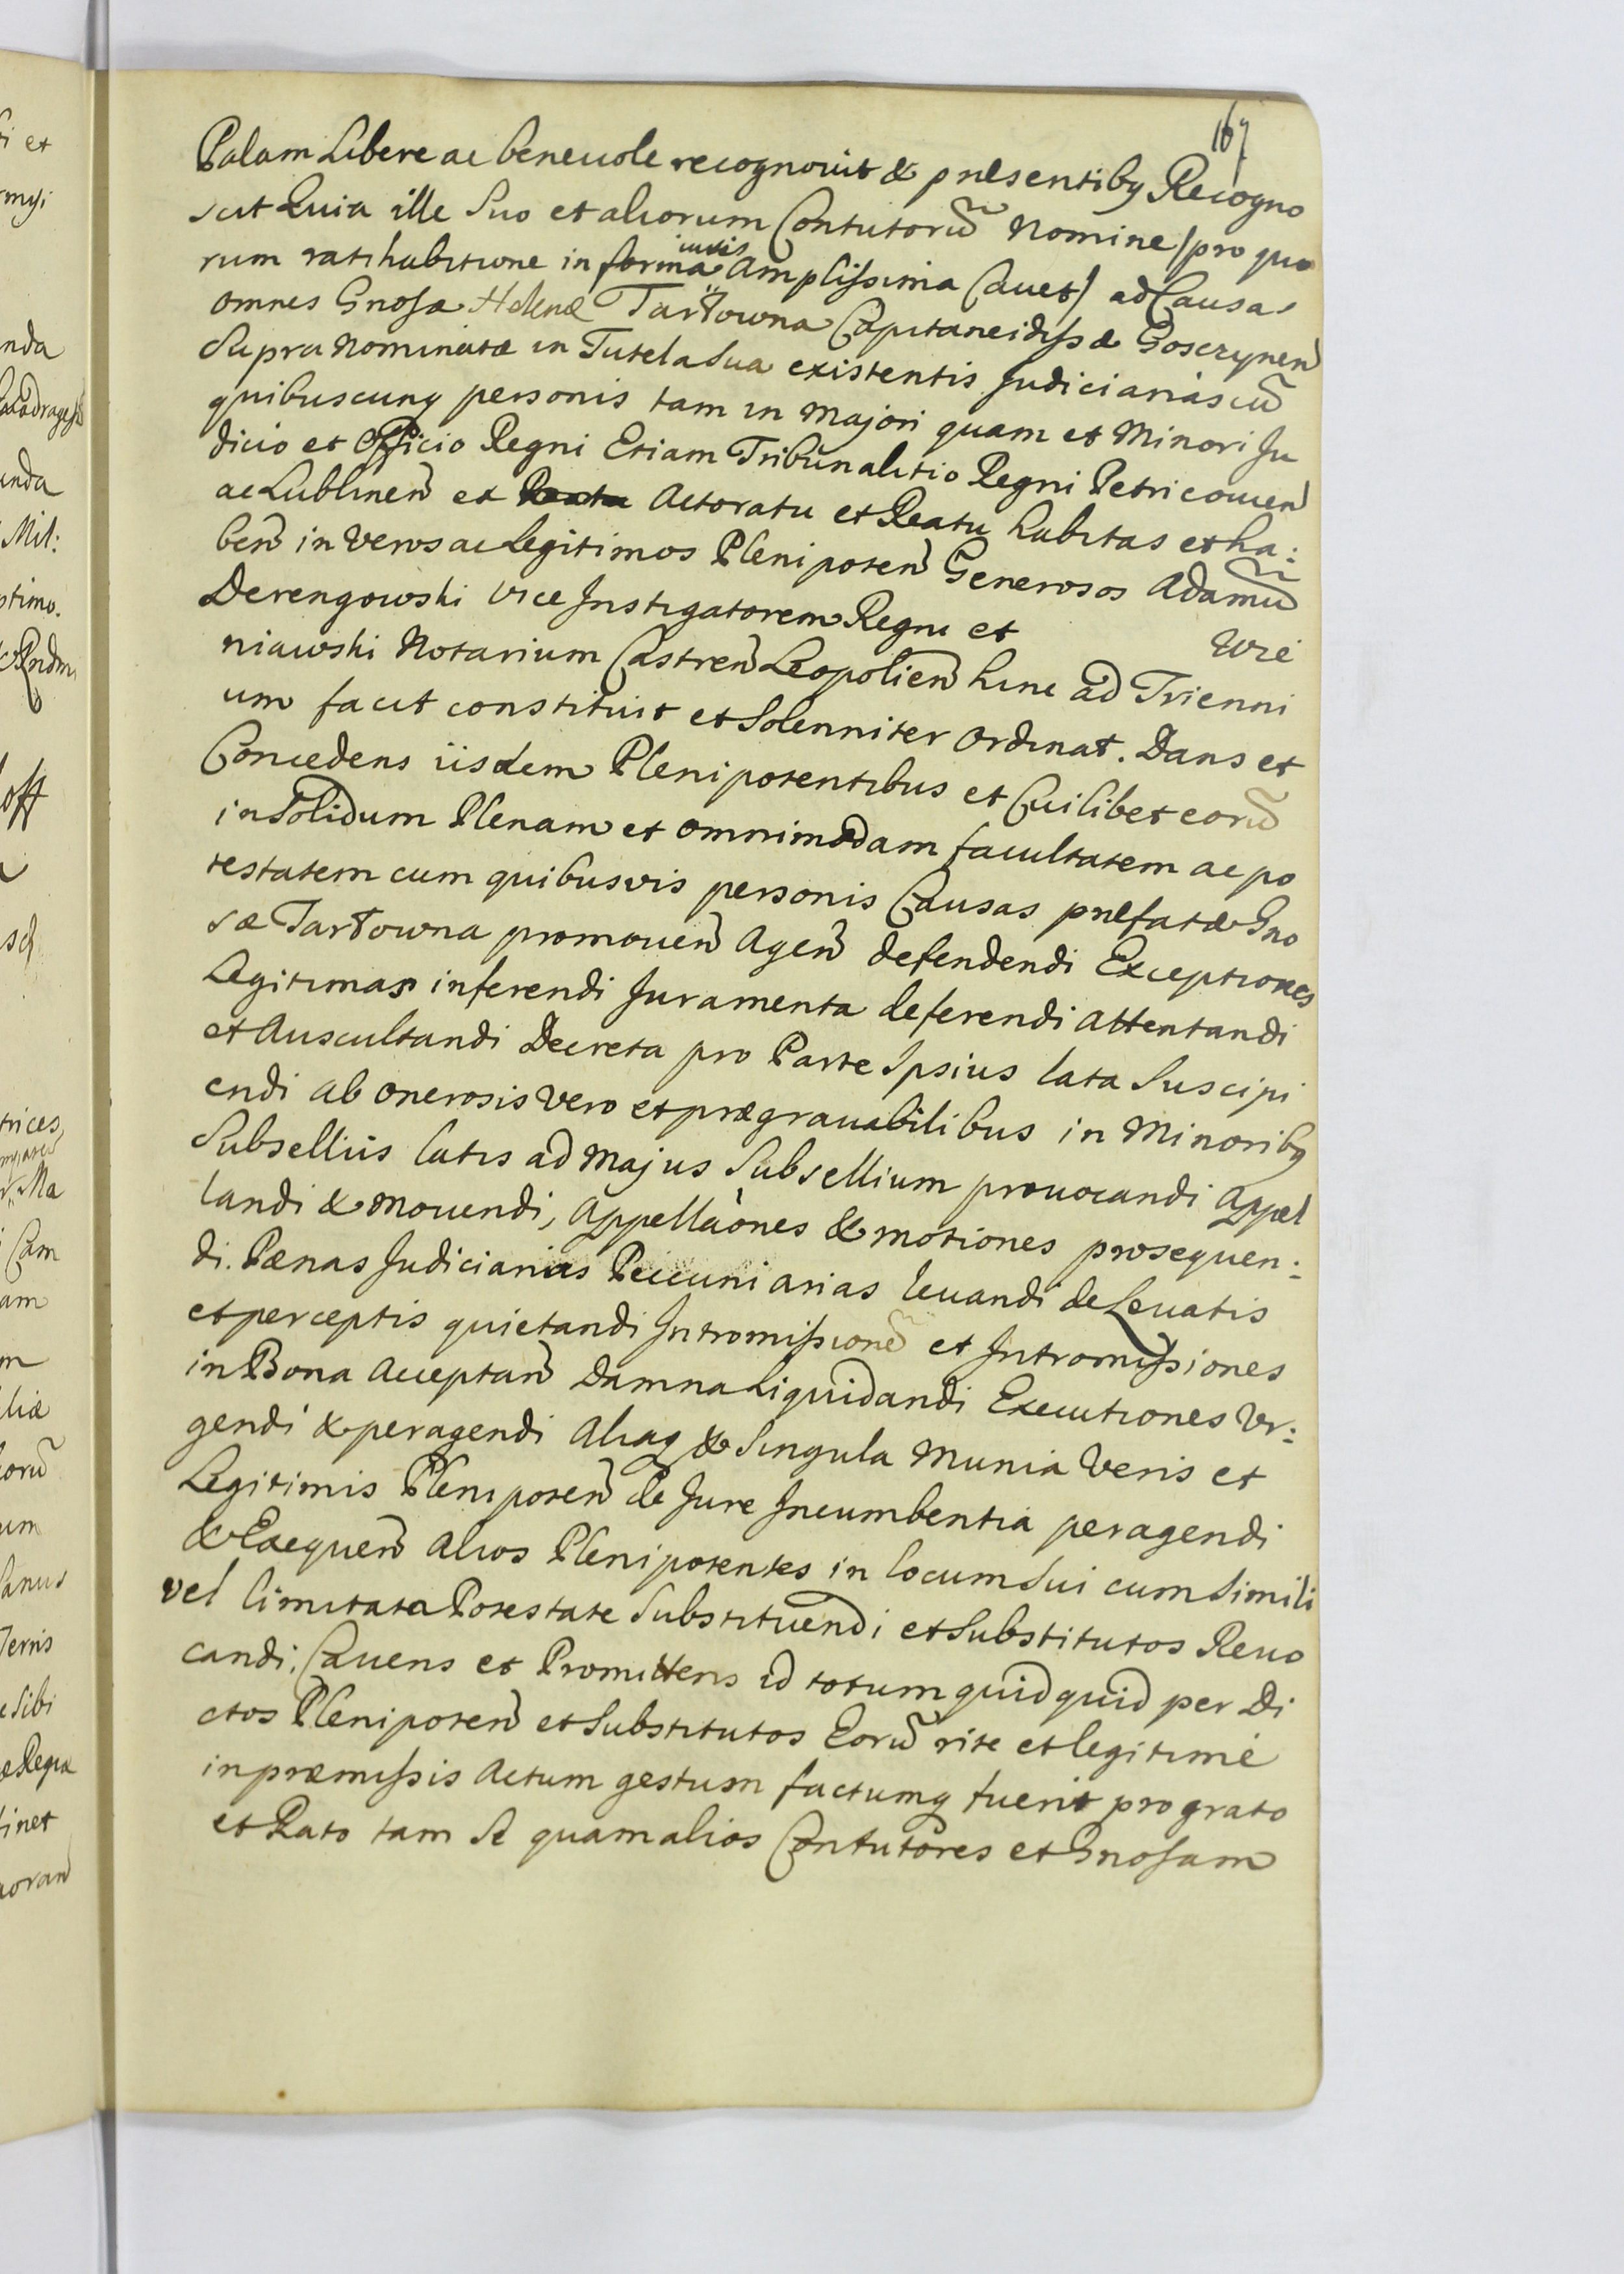 167
Palam Libere ac beneuole recognouit & præsentibq Recogno
scit Quia ille Suo et aliorum Contutorũ Nomine /pro quo
rum ratihabitione in forma iuris Amplissima Cauet/ ad Causas
omnes Gnosæ Helenæ Tarłowna Capitaneidissæ Goscynen
Supra Nominatæ in Tutela Sua existentis Judiciarias cũ
quibuscunq personis tam in Majori quam et Minori Ju
dicio et Officio Regni Etiam Tribunalitio Regni Petricouien
ac Lublinen et Actoratu et Reatu habitas et ha:
ben in Veros ac Legitimos Plenipoten Generosos Adamũ
Derengowski Vice Instigatorem Regni et Wie
niawski Notarium Castren Leopolien hinc ad Trienni
um facit constituit et Solenniter Ordinat. Dans et
Concedens iisdem Plenipotentibus et Cuilibet eorũ
in Solidum Plenam et omnimodam facultatem ac po
testatem cum quibusvis personis Causas præfatæ Gno
sæ Tarłowna promouen Agen defendendi Exceptiones
Legitimas inferendi Juramenta deferendi Attentandi
et Auscultandi Decreta pro Parte Ipsius lata Suscipi
endi ab onerosis Vero et prægrauabilibus in Minoribq
Subselliis latis ad Majus Subsellium prouocandi Appel
landi & Mouendi, Appellaones & motiones prosequen:
di. Pænas Judiciarias Peccuniarias leuandi de Leuatis
et perceptis quietandi Intromissionẽ et Intromissiones
in Bona Acceptan Damna Liquidandi Executiones Vr:
gendi & peragendi Aliaq & Singula Munia Veris et
Legitimis Plenipoten de Jure Incumbentia peragendi
& Exequen Alios Plenipotentes in locum Sui cum Simili
vel limitata Potestate Substituendi et Substitutos Reuo
candi. Cauens et Promittens id totum quidquid per Di
ctos Plenipoten et Substitutos Eorũ rite et legitimè
in præmissis Actum gestum factumq fuerit pro grato
et Rato tam Se quam alios Contutores et Gnosam